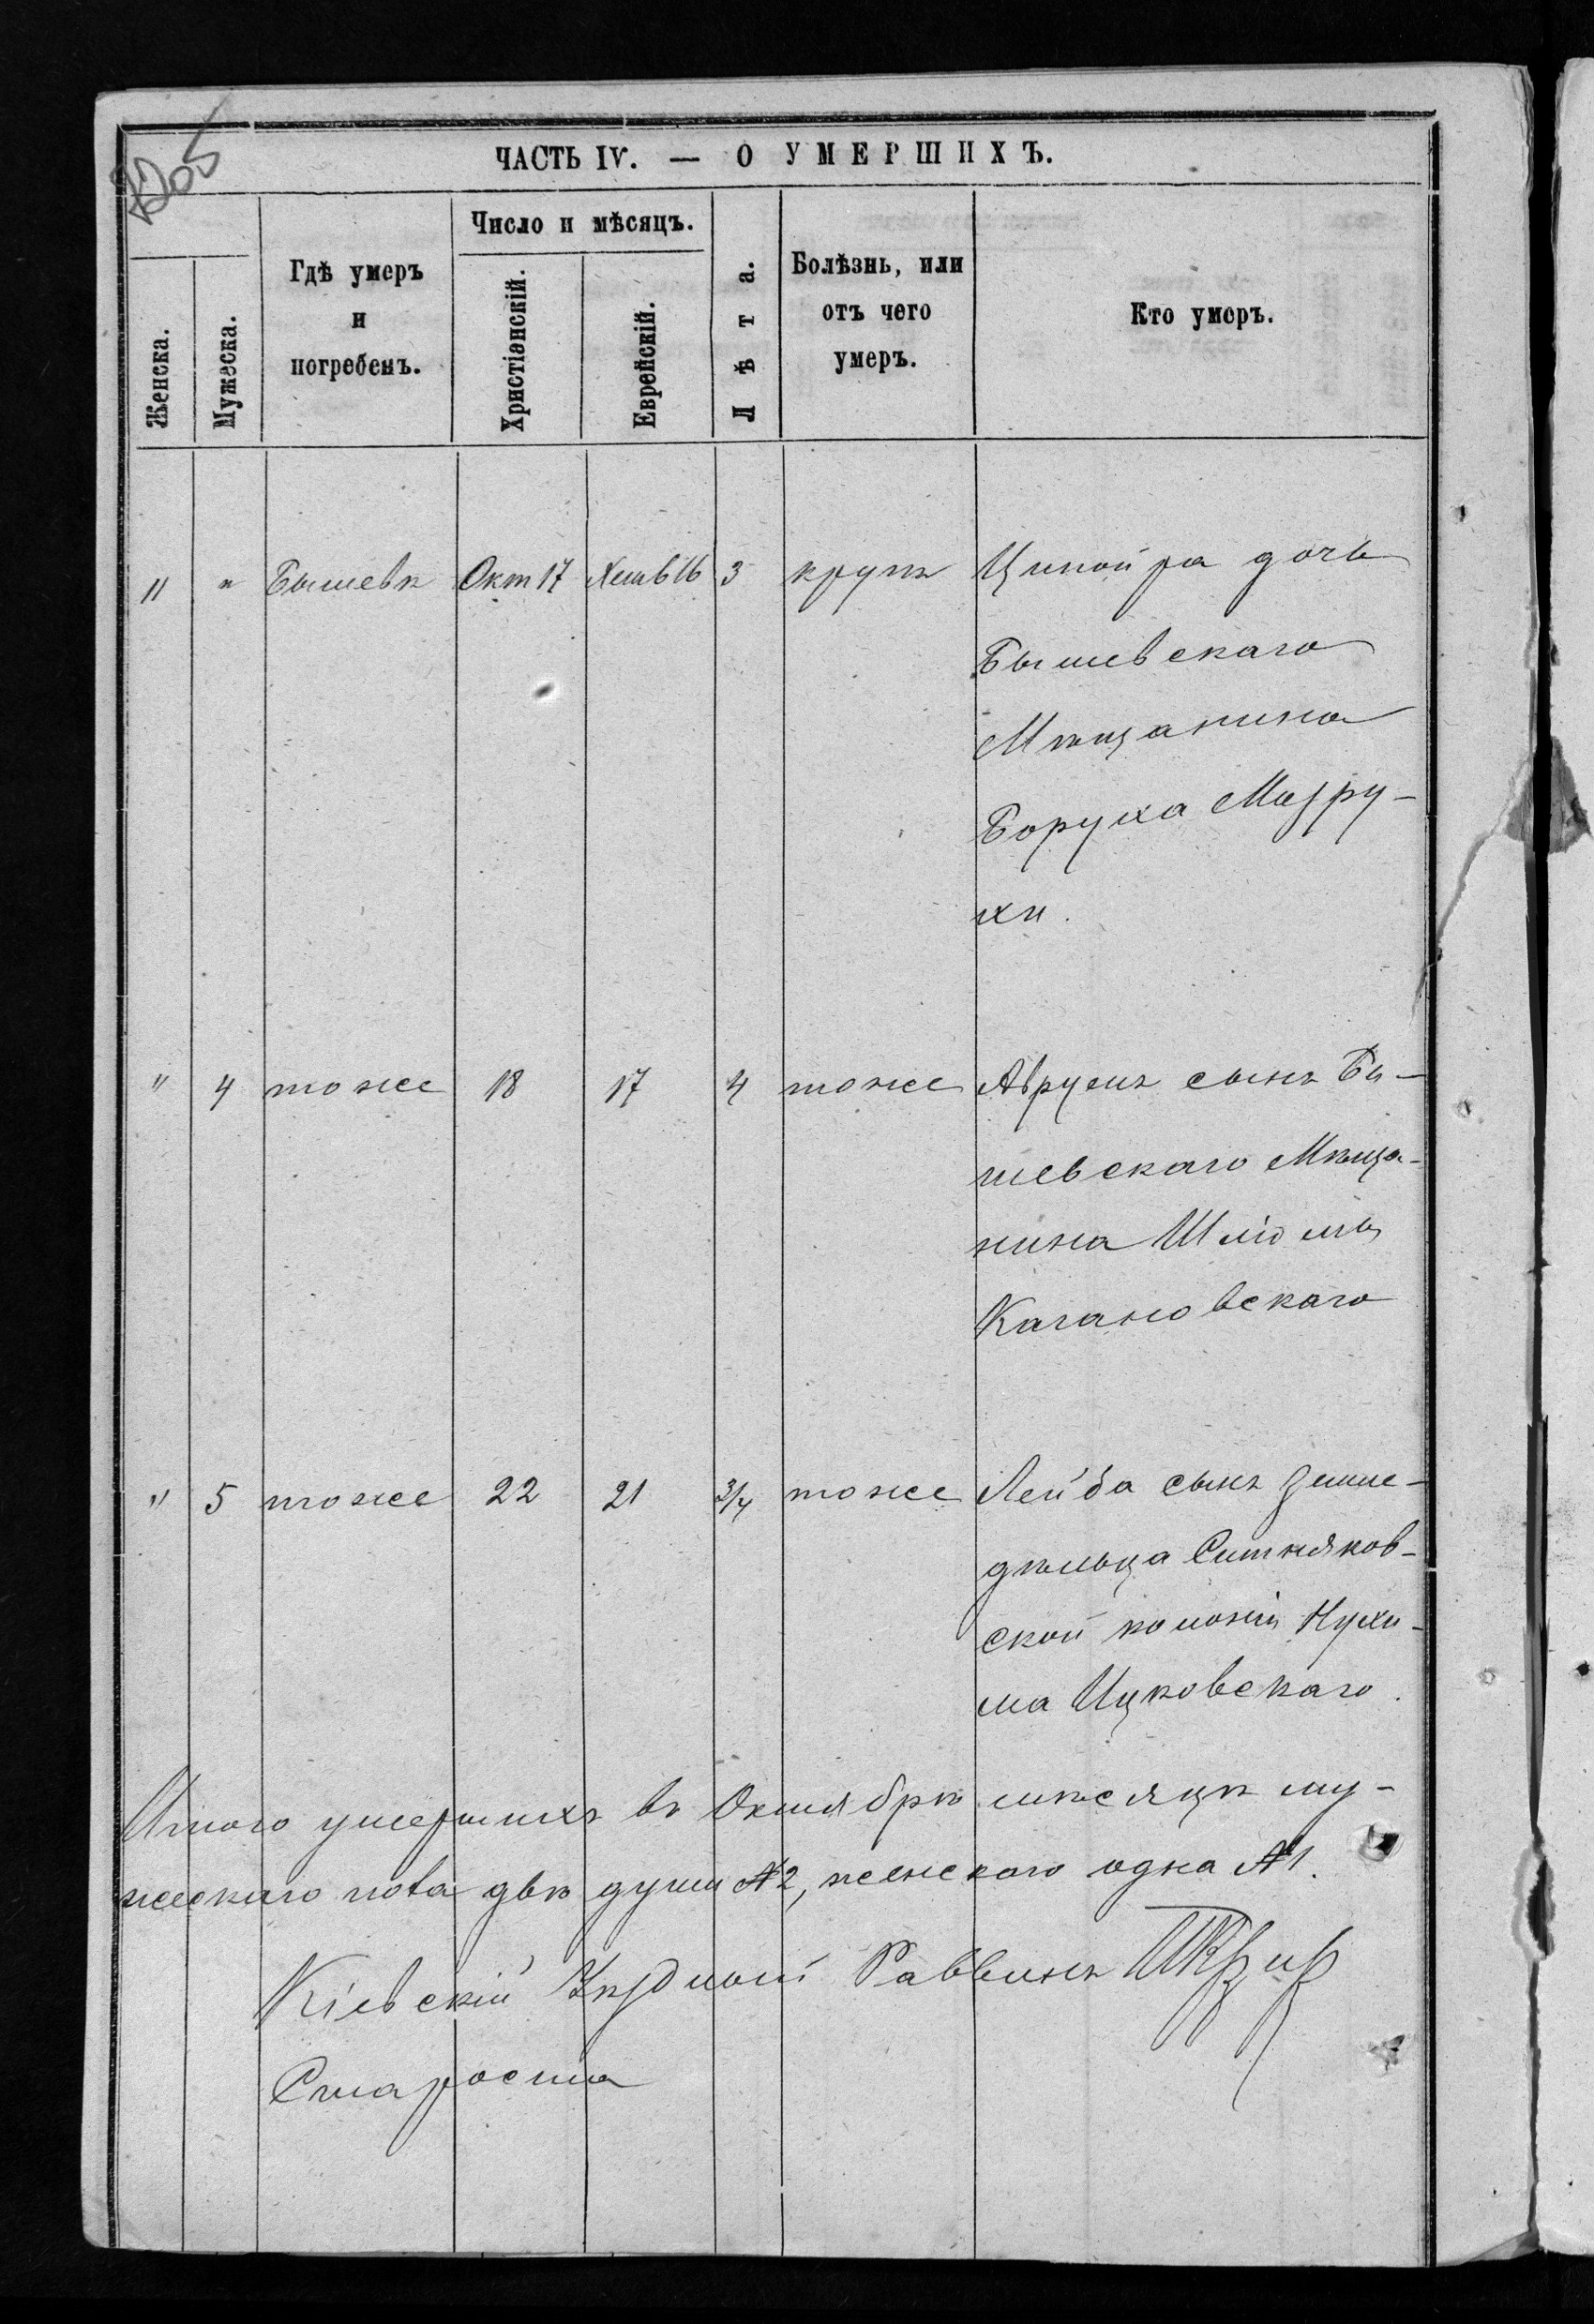 205
ЧАСТЬ IV. — О УМЕРШИХЪ.
Женска.
Мужеска.
Гдѣ умеръ
и
погребенъ.
Число и мѣсяцъ.
Христіанскій.
Еврейскій.
Лѣта.
Болѣзнь, или
отъ чего
умеръ.
Кто умеръ.
11 " Бышевѣ Окт 17 Хешв 16 3 крупъ Ципойра дочь
Бышевскаго
Мѣщанина
Боруха Мазру-
хи.
" 4 тоже 18 17 4 тоже Аврумъ сынъ Бы-
шевскаго Мѣща-
нина Шліомы
Кагановскаго
" 5 тоже 22 21 3/4 тоже Лейба сынъ земле-
дѣльца Ситняков-
ской колоніи Нухи-
ма Ицковскаго.
Итого умершихъ въ Октябрѣ мѣсяцѣ му-
жескаго пола двѣ души №2, женскаго одна №1.
Кіевскій Уѣздный Раввинъ
Староста